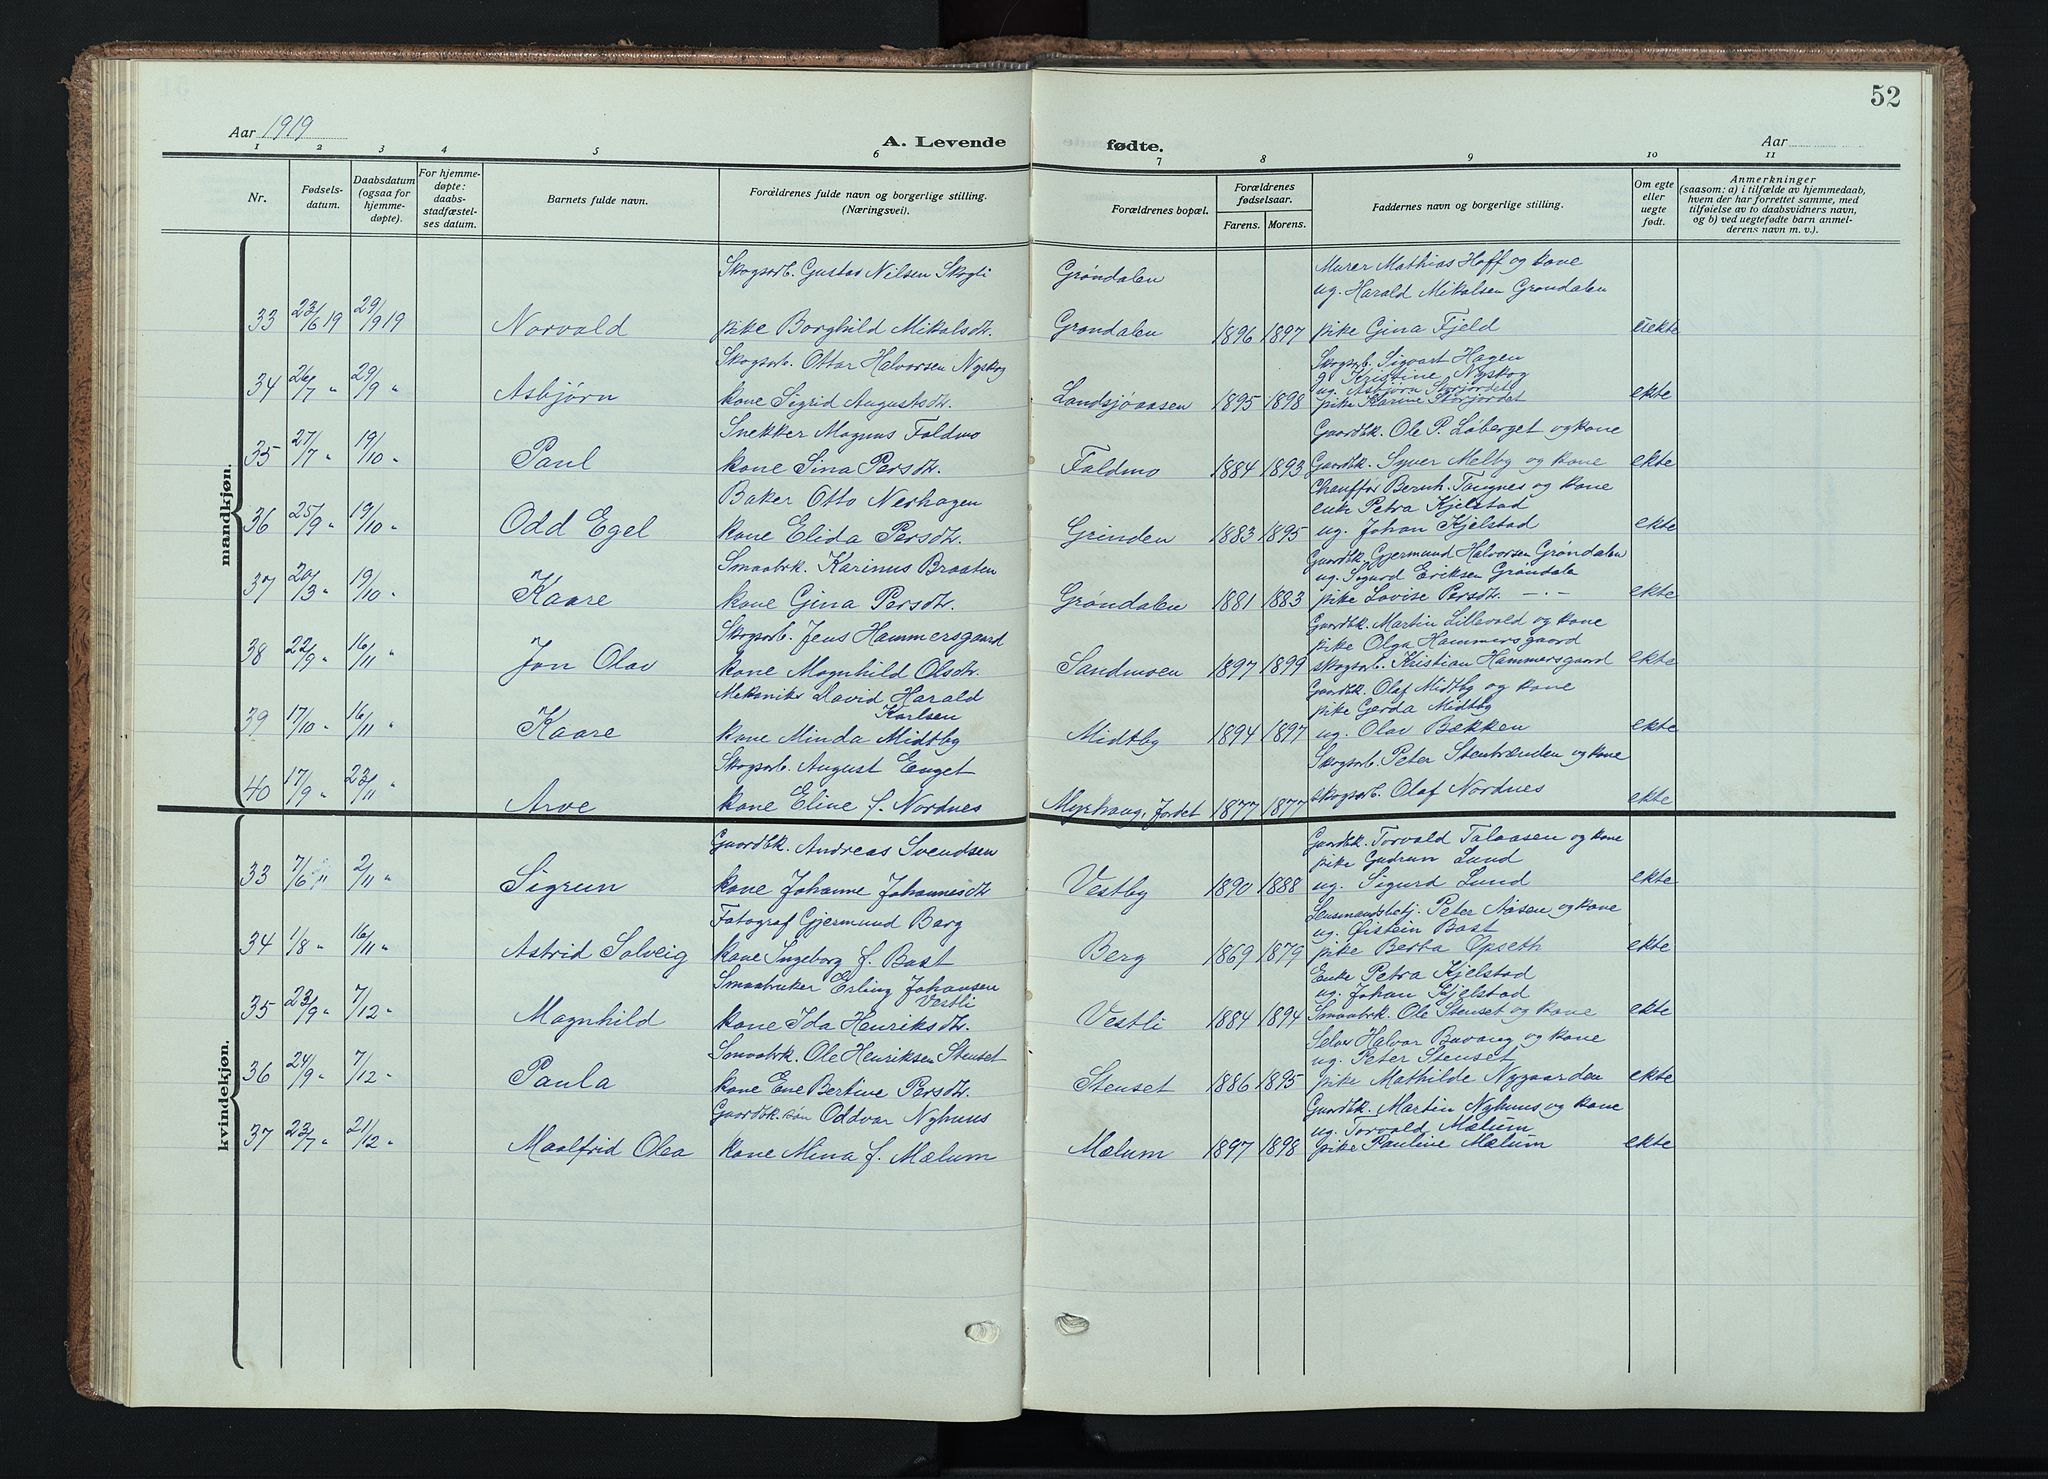 52
Aar 1919
A. Levende fødte.
Aar
1 2 3 4 5 6 7 8 9 10 11
Nr.
Fødselsdatum.
Daabsdatum (ogsaa for hjemmedøpte).
For hjemmedøpte: daabsstadfæstelses datum.
Barnets fulde navn.
Forældrenes fulde navn og borgerlige stilling. (Næringsvei).
Forældrenes bopæl.
Forældrenes fødselsaar.
Farens. Morens.
Faddernes navn og borgerlige stilling.
Om egte eller uegte født.
Anmerkninger
(saasom: a) i tilfælde av hjemmedaab, hvem der har forrettet samme, med tilføielse av to daabsvidners navn, og b) ved uegtefødte barn anmelderens navn m. v.).
mandkjøn.
Skogsarb. Gustav Nilsen Skogli Grøndalen Murer Mathias Hoff og kone
ug. Harald Mikalsen Grøndalen
33 23/6 19 29/9 19 Norvald pike Borghild Mikalsdt. Grøndalen 1896 1897 pike Gina Fjeld uekte
Skogsarb. Ottar Halvorsen Nyskog Skogsarb. Sigvart Hagen
g. Kristine Nyskog
ug. Asbjørn Storjordet
34 26/7 " 29/9 " Asbjørn kone Sigrid Augustsdt. Landsjøaasen 1895 1898 pike Karine Storjordet ekte
Snekker Magnus Faldmo Gaardbk. Ole P. Løberget og kone
35 27/7 " 19/10 " Paul kone Sina Persdt. Faldmo 1884 1893 Gaardbk. Syver Melby og kone ekte
Baker Otto Nerhagen Chauffør Bernh. Tangnes og kone
enke Petra Kjelstad
36 25/9 " 19/10 " Odd Egel kone Elida Persdt. Grinden 1883 1895 ug. Johan Kjelstad ekte
Smaabrk. Karinus Braaten Gaardbk. Gjermund Halvorsen Grøndalen
ug. Sigurd Eriksen Grøndalen
37 20/3 " 19/10 " Kaare kone Gina Persdt. Grøndalen 1881 1883 pike Lovise Persdt. -"- ekte
Skogsarb. Jens Hammersgaard Gaardbk. Martin Lillevold og kone
pike Olga Hammersgaard
38 22/9 " 16/11 " Jon Olav kone Magnhild Olsdt. Sandmoen 1897 1899 skogsarb. Kristian Hammersgaard ekte
Mekaniker David Harald Karlsen Gaardbk. Olaf Midtby og kone
pike Gerda Midtby
39 17/10 " 16/11 " Kaare kone Minda Midtby Midtby 1894 1897 ug. Olav Bækken ekte
Skogsarb. August Enget Skogsarb. Peter Stenbrænden og kone
40 17/9 " 23/11 " Arve kone Eline f. Nordnes Myrhaug, Jordet 1877 1877 skogsarb. Olaf Nordnes ekte
kvindekjøn.
Gaardbk. Andreas Svendsen Gaardbk. Torvald Talaasen og kone
pike Gudrun Lund
33 7/6 " 2/11 " Sigrun kone Johanne Johannesdt. Vestby 1890 1888 ug. Sigurd Lund ekte
Fotograf Gjermund Berg Lensmandsbetj. Peter Aasen og kone
ug. Øistein Bast
34 1/8 " 16/11 " Astrid Solveig kone Ingeborg f. Bast Berg 1869 1879 pike Berta Opseth ekte
Smaabruker Erling Johansen Vestli Enke Petra Kjelstad
ug. Johan Kjelstad
35 23/9 " 7/12 " Magnhild kone Ida Henriksdt. Vestli 1884 1894 Smaabrk. Ole Stenset og kone ekte
Smaabrk. Ole Henriksen Stenset Selv. Halvor Bavang og kone
ug. Peter Stenset
36 24/9 " 7/12 " Paula kone Ene Bertine Persdt. Stenset 1886 1895 pike Mathilde Nygaarden ekte
Gaardbk. søn Oddvar Nyhuus Gaardbk. Martin Nyhuus og kone
ug. Torvald Mælum
37 23/7 " 21/12 " Maalfrid Olea kone Mina f. Mælum Mælum 1897 1898 pike Pauline Mælum ekte